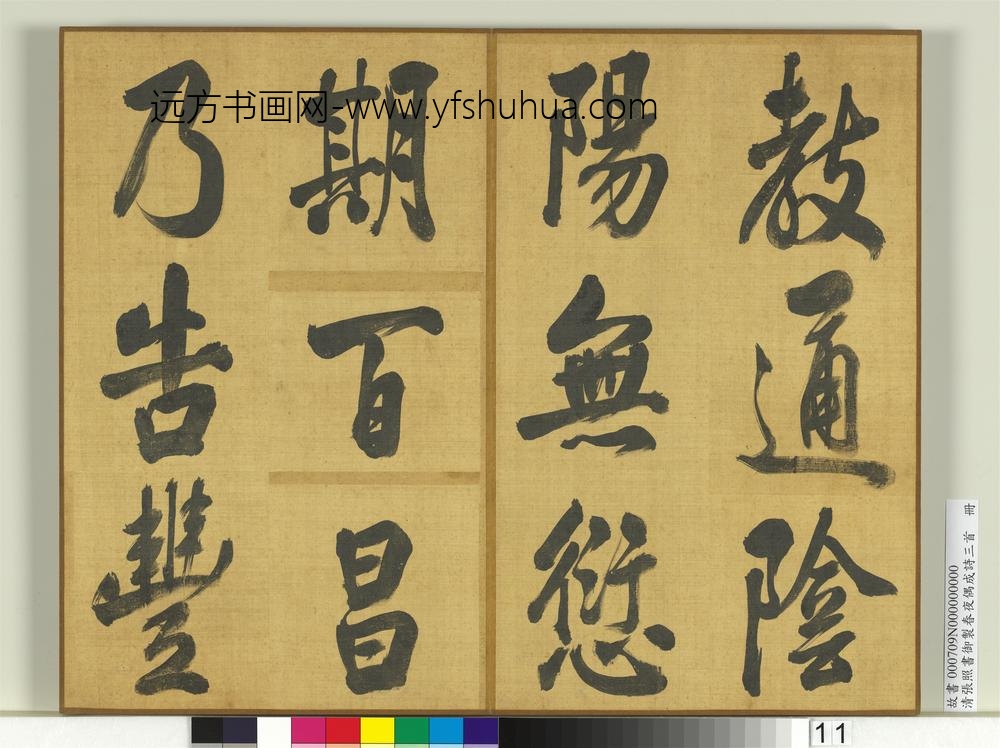 教通陰
陽無愆
期百昌
乃告豐
远方书画网-www.yfshuhua.com
故書 000709N000000000
清張照書御製春夜偶成詩三首 冊
11